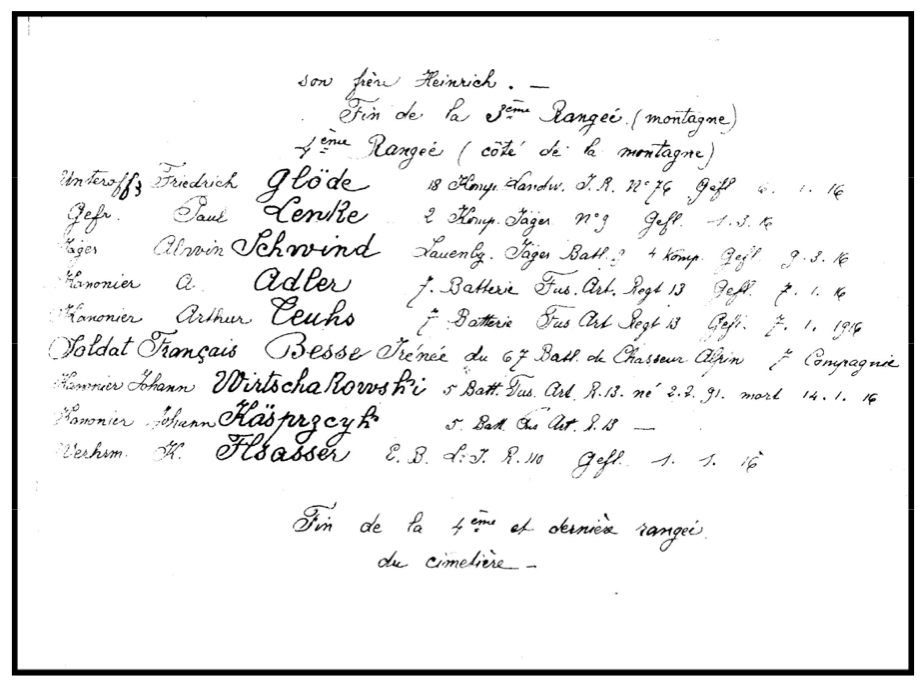 son frère Heinrich. —
Fin de la 3ème Rangeé (montagne)
4ème Rangeé (côté de la montagne)
Unteroffz Friedrich Glöde 18 Komp. Landw. J. R. N°76 Gefl 6. 1. 16
Gefr. Paul Lenke 2 Komp. Jäger N°9 Gefl. 1.3.16
Jäger Alwin Schwind Lauenbg. Jäger Batl. 9 4 Komp. Gefl 9.3.16
Kanonier A. Adler 7. Batterie Fus. Art. Regt 13 Gefl 7. 1. 16
Kanonier Arthur Teuhs 7 Batterie Fus Art Regt 13 Gefl. 7. 1. 1916
Soldat Français Besse Irénée du 67 Batl. de Chasseur Alpin 7 Compagnie
Kanonier Johann Wirtschakowski 5 Batt. Fus. Art. R.13. né 2.2.91. mort 14.1.16
Kanonier Johann Käsprzcyk 5. Batt Fus Art. R.13 —
Wehrm. K. Elsasser E. B. L. J. R. 110 Gefl. 1. 1. 16
Fin de la 4ème et dernière rangeé
du cimetière —